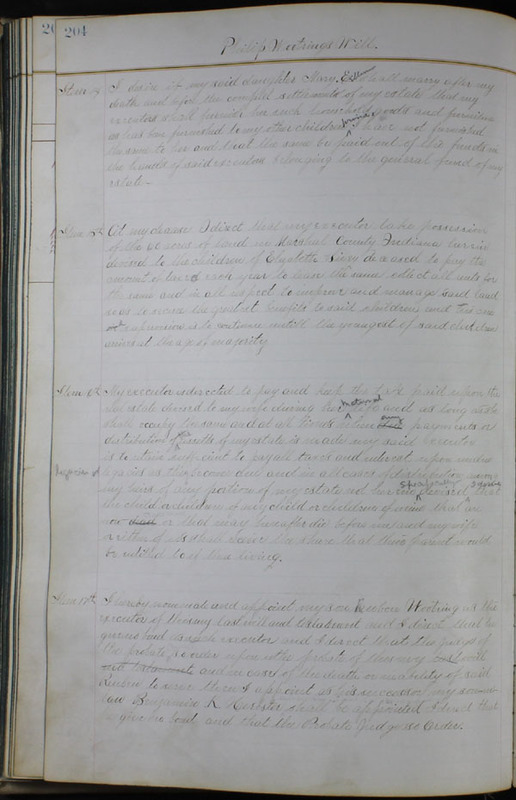 204
Philip Wertrings Will.
Item I desire if my said daughter Mary shall marry after my
death and before the complete settlements of my estate that my
executors shall furnish her such household goods and furniture
as has been furnished to my other children have not furnished
the same to her and that the same be paid out of the funds in
the hands of said executors belonging to the general fund of my
estate-
Item At my decease I direct that my executor take possession
of the 80 acres of land in Marshall County Indiana herein
devised to the children of Elizabeth deceased to pay the
amount of taxes each year to lease the same collect all rents for
the same and in all respect to improve and manage said land
so as to secure the greatest benefits to said children and this care
supervision is to continue untill the youngest of said children
arrives at the age of majority
Item My executor is directed to pay and keep the tax paid upon the
real estate devised to my wife during her natural life and as long as she
shall occupy the same and at all times when any payments or
distribution of my estate is made my said Executor
is to retain sufficient to pay the taxes and interest upon
as the same become due and in all cases of distribution among
my heirs of any portion of my estate not herein specifically devised that
the child or children of any child or children of mine that are
now dead or that may hereafter die before me and my wife
or either of us shall receive the share that their parent would
be entitled to if then living.
Item I hereby nominate and appoint my son Reuben as the
executor of this my last will and testament and I direct that he
give no bond as such executor and I direct that the judge of
the probate so order upon the probate of this my will
and in case of the death or inability of said
Reuben to serve then I appoint as his successor my son in
law Benjamin K. shall be appointed I direct that
give no bond and that the Probate Judge so Order.